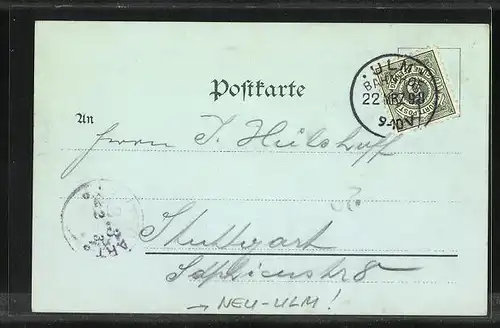 ULM
22 MRZ 99
9-10 V
Postkarte
An
Herrn J. Hülshoff
Stuttgart
Sophienstr 8
→ NEU-ULM!